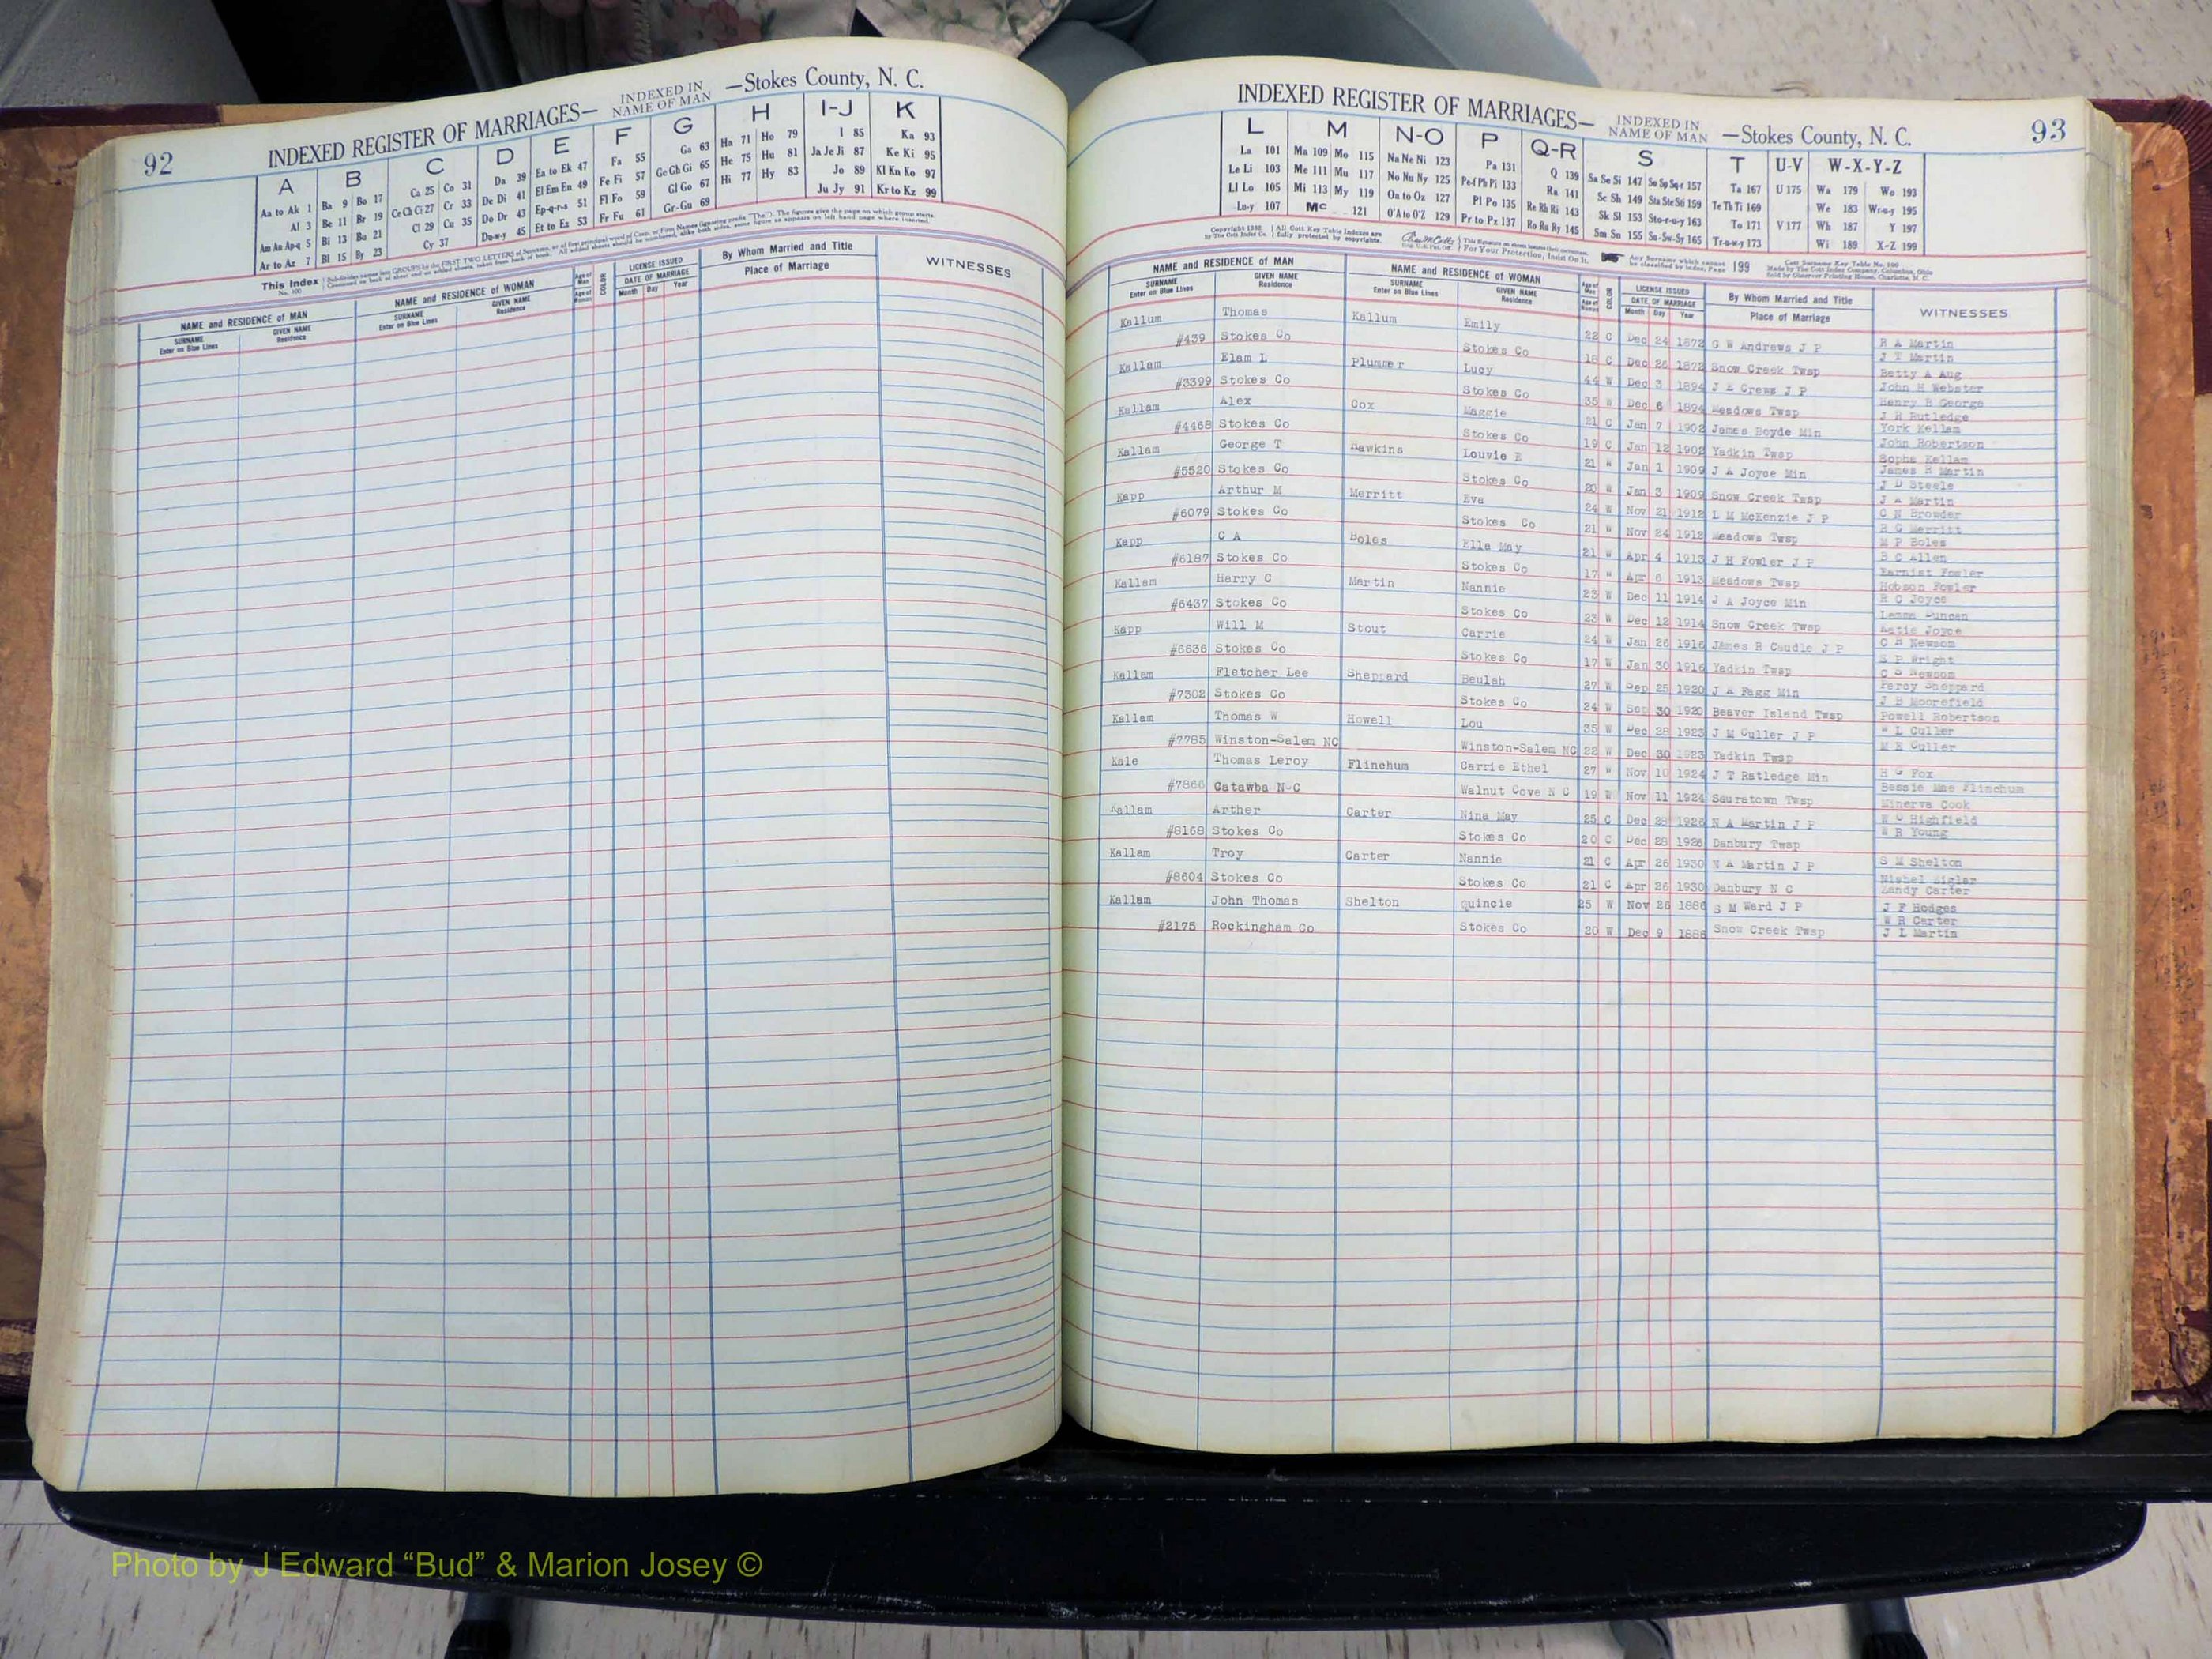 92
INDEXED REGISTER OF MARRIAGES— INDEXED IN NAME OF MAN —Stokes County, N. C.
A B C D E F G H I-J K
Aa to Ak 1 Ba 9 Bo 17 Ca 25 Co 31 Da 39 Ea to Ek 47 Fa 55 Ga 63 Ha 71 Ho 79 I 85 Ka 93
Al 3 Be 11 Br 19 Ce Ch Ci 27 Cr 33 De Di 41 El Em En 49 Fe Fi 57 Ge Gh Gi 65 He 75 Hu 81 Ja Je Ji 87 Ke Ki 95
Am An Ap-q 5 Bi 13 Bu 21 Cl 29 Cu 35 Do Dr 43 Ep-q-r-s 51 Fl Fo 59 Gl Go 67 Hi 77 Hy 83 Jo 89 Kl Kn Ko 97
Ar to Az 7 Bl 15 By 23 Cy 37 Du-w-y 45 Et to Ez 53 Fr Fu 61 Gr-Gu 69 Ju Jy 91 Kr to Kz 99
This Index
NAME and RESIDENCE OF MAN NAME and RESIDENCE OF WOMAN COLOR LICENSE ISSUED By Whom Married and Title WITNESSES
SURNAME GIVEN NAME SURNAME GIVEN NAME DATE OF MARRIAGE Place of Marriage
Enter on Blue Lines Residence Enter on Blue Lines Residence Month Day Year
INDEXED REGISTER OF MARRIAGES— INDEXED IN NAME OF MAN —Stokes County, N. C.
93
L M N-O P Q-R S T U-V W-X-Y-Z
La 101 Ma 109 Mo 115 Na Ne Ni 123 Pa 131 Q 139 Sa Se Si 147 So Sp Sq-r 157 Ta 167 U 175 Wa 179 Wo 193
Le Li 103 Me 111 Mu 117 No Nu Ny 125 Pe-f Ph Pi 133 Ra 141 Sc Sh 149 Sta Ste Sti 159 Te Th Ti 169 We 183 Wr-u-y 195
Ll Lo 105 Mi 113 My 119 Oa to Oz 127 Pl Po 135 Re Rh Ri 143 Sk Sl 153 Sto-r-u-y 163 To 171 V 177 Wh 187 Y 197
Lu-y 107 Mc 121 O'A to O'Z 129 Pr to Pz 137 Ro Ru Ry 145 Sm Sn 155 Su-Sw-Sy 165 Tr-u-w-y 173 Wi 189 X-Z 199
NAME and RESIDENCE OF MAN NAME and RESIDENCE OF WOMAN COLOR LICENSE ISSUED By Whom Married and Title WITNESSES
SURNAME GIVEN NAME SURNAME GIVEN NAME DATE OF MARRIAGE Place of Marriage
Enter on Blue Lines Residence Enter on Blue Lines Residence Month Day Year
Kallum Thomas Kallum Emily 22 C Dec 24 1872 G W Andrews J P R A Martin
#439 Stokes Co Stokes Co 18 C Dec 26 1872 Snow Creek Twsp J T Martin
Betty A Aug
Kallam Elam L Plummer Lucy 44 W Dec 3 1894 J E Crews J P John H Webster
#3399 Stokes Co Stokes Co 35 W Dec 6 1894 Meadows Twsp Henry B George
J H Rutledge
Kallam Alex Cox Maggie 21 C Jan 7 1902 James Boyde Min York Kellam
#4468 Stokes Co Stokes Co 19 C Jan 12 1902 Yadkin Twsp John Robertson
Sophe Kellam
Kallam George T Hawkins Louvie E 21 W Jan 1 1909 J A Joyce Min James R Martin
#5520 Stokes Co Stokes Co 20 W Jan 3 1909 Snow Creek Twsp J D Steele
J A Martin
Kapp Arthur M Merritt Eva 24 W Nov 21 1912 L M McKenzie J P C N Browder
#6079 Stokes Co Stokes Co 21 W Nov 24 1912 Meadows Twsp R G Merritt
M P Boles
Kapp C A Boles Ella May 21 W Apr 4 1913 J H Fowler J P B C Allen
#6187 Stokes Co Stokes Co 17 W Apr 6 1913 Meadows Twsp Earnist Fowler
Hobson Fowler
Kallam Harry C Martin Nannie 23 W Dec 11 1914 J A Joyce Min R C Joyce
#6437 Stokes Co Stokes Co 23 W Dec 12 1914 Snow Creek Twsp Duncan
Katie Joyce
Kapp Will M Stout Carrie 24 W Jan 26 1916 James R Caudle J P C H Newsom
#6636 Stokes Co Stokes Co 17 W Jan 30 1916 Yadkin Twsp S P Wright
C S Newsom
Kallam Fletcher Lee Sheppard Beulah 27 W Sep 25 1920 J A Fagg Min Percy Sheppard
#7302 Stokes Co Stokes Co 24 W Sep 30 1920 Beaver Island Twsp J B Moorefield
Powell Robertson
Kallam Thomas W Howell Lou 35 W Dec 28 1923 J M Culler J P W L Culler
#7785 Winston-Salem NC Winston-Salem NC 22 W Dec 30 1923 Yadkin Twsp M E Culler
Kale Thomas Leroy Flinchum Carrie Ethel 27 W Nov 10 1924 J T Ratledge Min H G Fox
#7866 Catawba N C Walnut Cove N C 19 W Nov 11 1924 Sauratown Twsp Bessie Mae Flinchum
Minerva Cook
Kallam Arther Carter Nina May 25 C Dec 28 1926 N A Martin J P W G Highfield
#8168 Stokes Co Stokes Co 20 C Dec 28 1926 Danbury Twsp W R Young
Kallam Troy Carter Nannie 21 C Apr 26 1930 N A Martin J P S M Shelton
#8604 Stokes Co Stokes Co 21 C Apr 26 1930 Danbury N C
Carter
Kallam John Thomas Shelton Quincie 25 W Nov 26 1886 S M Ward J P J F Hodges
#2175 Rockingham Co Stokes Co 20 W Dec 9 1886 Snow Creek Twsp W R Carter
J L Martin
Photo by J Edward “Bud” & Marion Josey ©